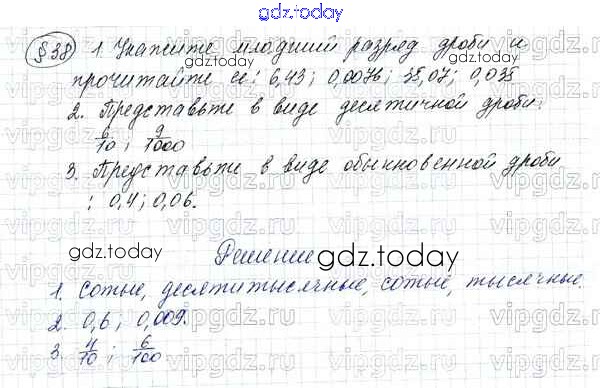 gdz.today
§38 1. Укажите младший разряд дроби и
прочитайте её: 6,43; 0,0076; 35,07; 0,035
2. Представьте в виде десятичной дроби:
6/10; 9/1000
3. Представьте в виде обыкновенной дроби
: 0,4; 0,06.
gdz.today
Решение
gdz.today
1. Сотые, десятитысячные, сотые, тысячные.
2. 0,6; 0,009.
3. 4/10; 6/100